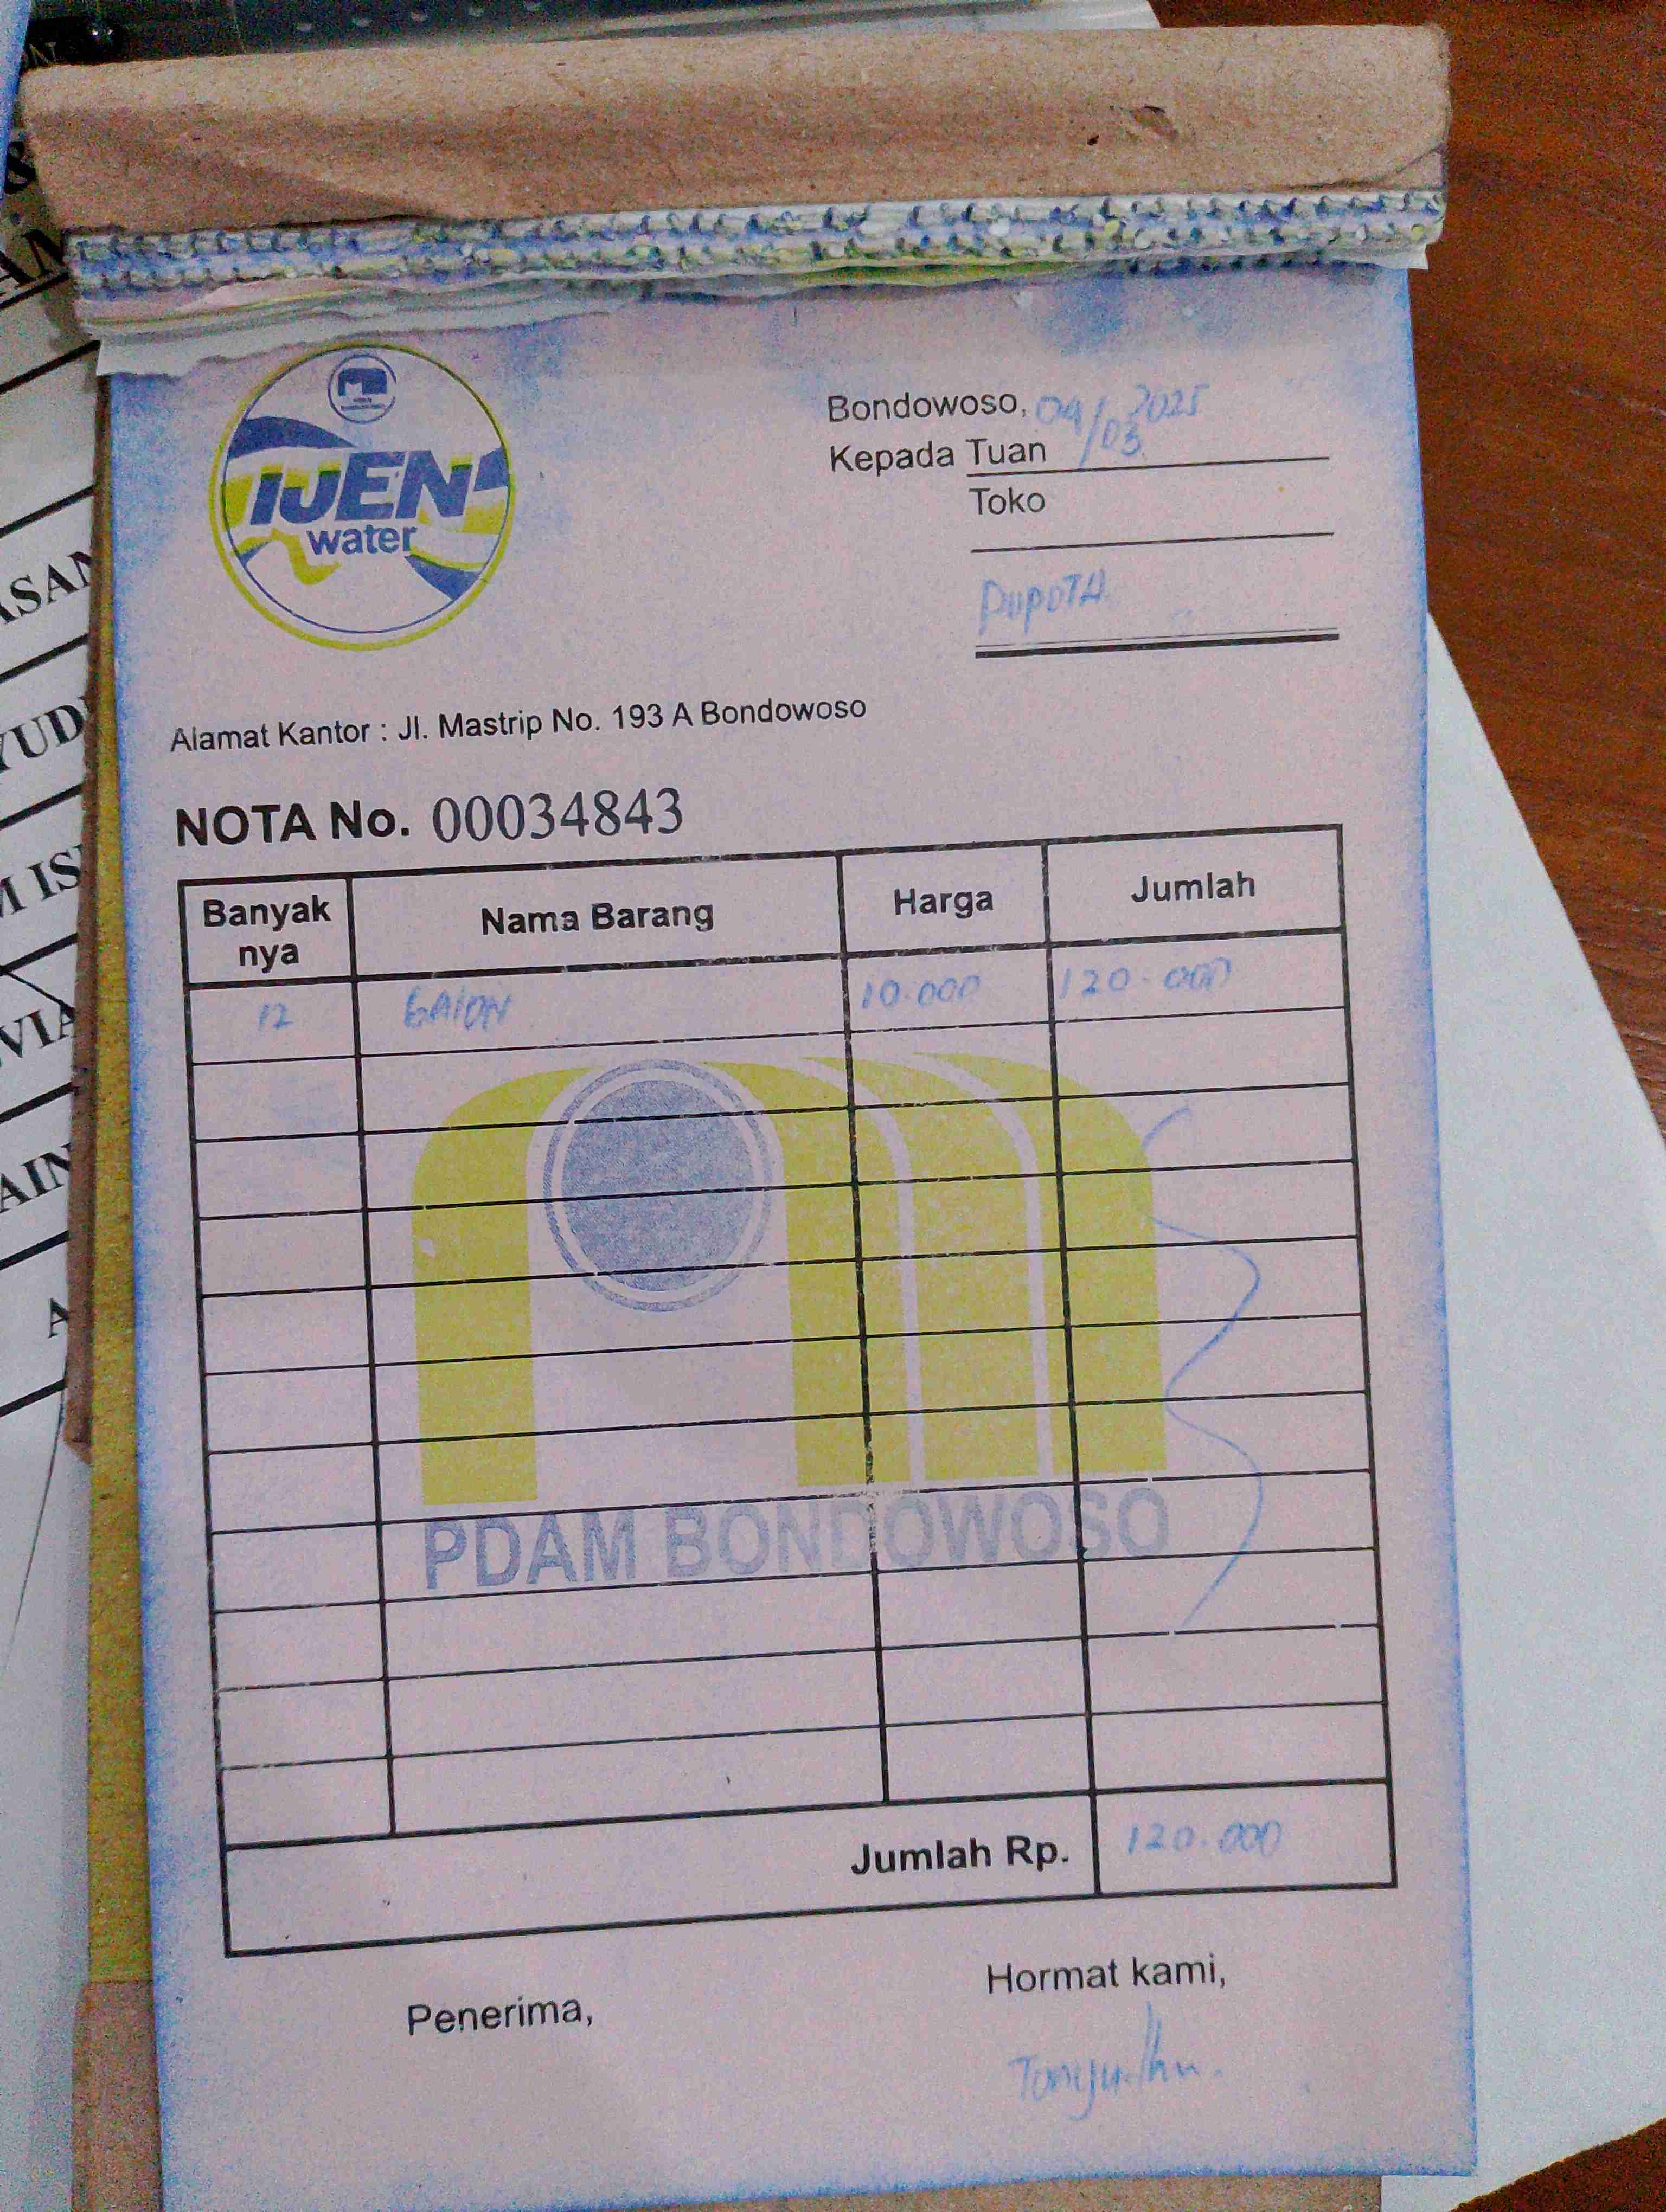 IJEN
water
Bondowoso, 04/03 2025
Kepada Tuan
Toko
PUPOTA
Alamat Kantor : Jl. Mastrip No. 193 A Bondowoso
NOTA No. 00034843
Banyak nya Nama Barang Harga Jumlah
12 GAlON 10.000 120.000
PDAM BONDOWOSO
Jumlah Rp. 120.000
Hormat kami,
Penerima,